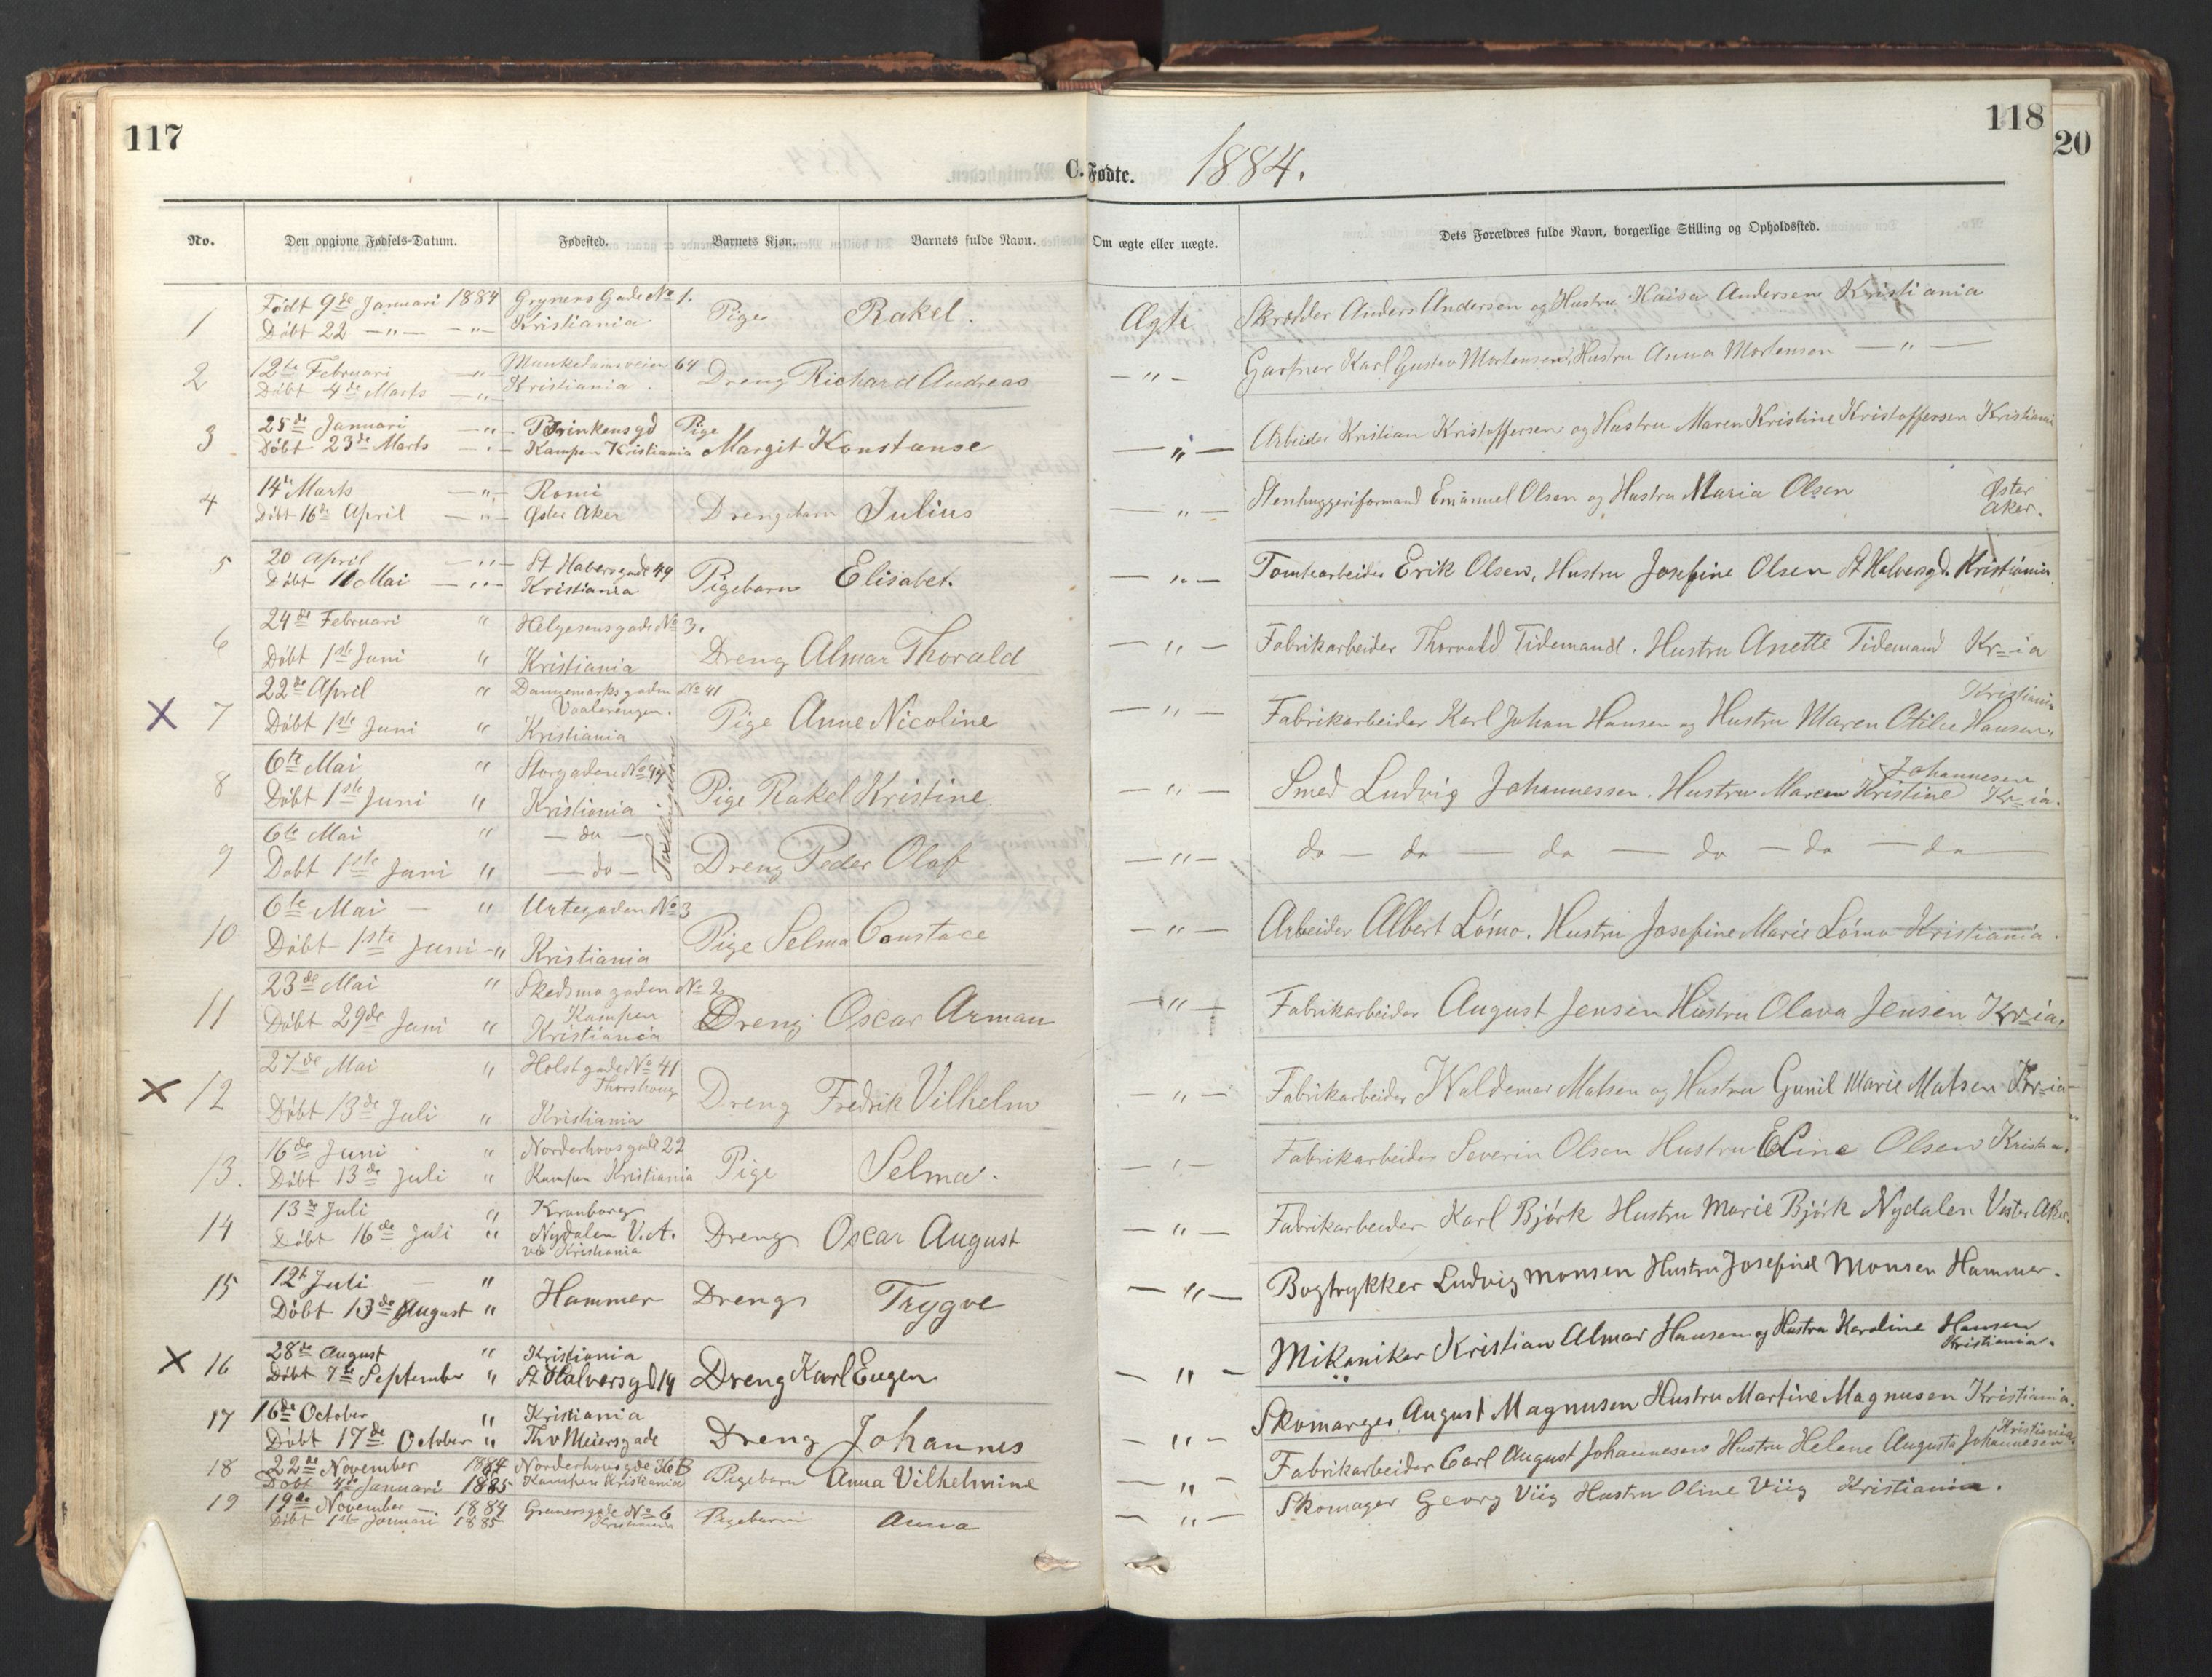 117
118
20
C. Fødte. 1884.
No. Den opgivne Fødsels-Datum. Fødested. Barnets Kjøn. Barnets fulde Navn. Om ægte eller uægte. Dets Forældres fulde Navn, borgerlige Stilling og Opholdssted.
1 Født 9de Januari 1884 Gryners Gade No 1. Pige Rakel. Ægte Skrædder Anders Andersen og Hustru Kaisa Andersen Kristiania
Döbt 22 — " — — " — Kristiania
2 12te Februari — " — Munkedamsveien 64 Dreng Richard Andreas — " — Gartner Karl Gustav Mortensen, Hustru Anna Mortensen — " —
Döbt 4de Marts — " — Kristiania.
3 25de Januari — " — Brinkensgd Pige Margit Konstanse — " — Arbeider Kristian Kristoffersen og Hustru Maren Kristine Kristoffersen Kristiania
Döbt 23de Marts — " — Kampen Kristiania
4 14de Marts — " — Romi Drengebarn Julius — " — Stenhuggeriformand Emanuel Olsen og Hustru Maria Olsen Øster
Döbt 16de April — " — Øster Aker Aker.
5 20 April — " — St Halversgade 49 Pigebarn Elisabet. — " — Tomtearbeider Erik Olsen, Hustru Josefine Olsen St Halversgd. Kristiania
Döbt 11 Mai — " — Kristiania
6 24de Februari " Helgesensgade No 3. Dreng Almar Thorald — " — Fabrikarbeider Thorvald Tidemand. Hustru Anette Tidemand Kr=ia
Döbt 1ste Juni " Kristiania
X 7 22de April " Dannemarksgaden No 41 Pige Anne Nicoline — " — Fabrikarbeider Karl Johan Hansen og Hustru Maren Otilie Hansen, Kristiania
Vaalerengen.
Döbt 1ste Juni " Kristiania
8 6te Mai " Storgaden No 44 Pige Rakel Kristine — " — Smed Ludvig Johannessen. Hustru Maren Kristine Johannesen Kr=ia.
Döbt 1ste Juni " Kristiania
Tvillinger
9 6te Mai " — do — Dreng Peder Olaf — " — do — do — do — do — do — do —
Döbt 1ste Juni " — do —
10 6te Mai — " Urtegaden No 3 Pige Selma Constace — " — Arbeider Albert Lömo. Hustru Josefine Marie Lömo Kristiania.
Döbt 1ste Juni — " Kristiania
11 23de Mai " Skedsmogaden No 2 Dreng Oscar Arman — " — Fabrikarbeider August Jensen Hustru Olava Jensen Kr=ia.
Kampen
Döbt 29de Juni " Kristiania
X 12 27de Mai " Holstgade No 41 Dreng Fredrik Vilhelm — " — Fabrikarbeider Waldemar Matsen og Hustru Gunil Marie Matsen Kr=ia
Thorshaug
Döbt 13de Juli " Kristiania
13. 16de Juni " Norderhovsgade 22 Pige Selma. — " — Fabrikarbeider Severin Olsen Hustru Eline Olsen Kristia.
Döbt 13de Juli " Kampen Kristiania
14 13de Juli " Kronborg Dreng Oscar August — " — Fabrikarbeider Karl Björk Hustru Marie Björk Nydalen Vester Aker.
Döbt 16de Juli " Nydalen V. A.
ved Kristiania
15 12t Juli — " Hammer Dreng Trygve — " — Bogtrykker Ludvig Monsen Hustru Josefine Monsen Hammer.
Döbt 13de August "
X 16 28de August " Kristiania Dreng Karl Eugen — " — Mikaniker Kristian Almar Hansen og Hustru Karoline Hansen
Döbt 7de September " St Halversgd 14 Kristiania.
17 16de October " Kristiania Dreng Johannes — " — Skomarger August Magnusen Hustru Martine Magnusen Kristiania.
Döbt 17de October " Thv Meiersgade
18 22de November 1884 Norderhovsgde 36 B Pigebarn Anna Vilhelmine — " — Fabrikarbeider Carl August Johannesen Hustru Helene Augusta Johannesen Kristiania
Döbt 4de Januari 1885 Kampen Kristiania
19 19de November — 1884 Grenersgade No 6 Pigebarn Anna — " — Skomager Georg Viig Hustru Oline Viig Kristiania.
Döbt 1st Januari 1885 Kristiania